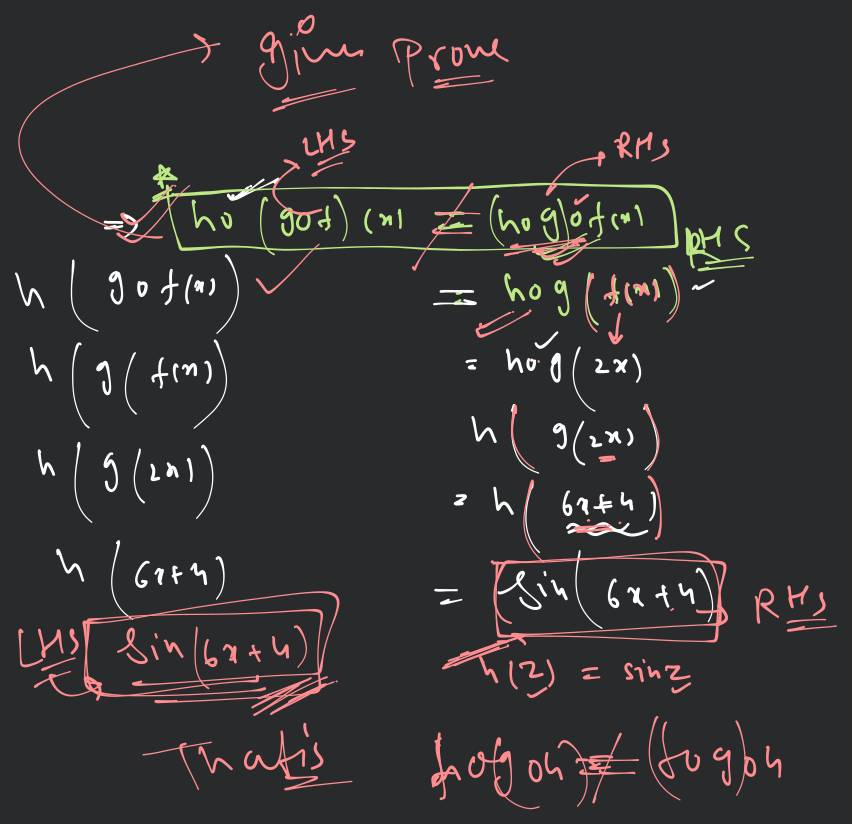 given Prove
LHS
RHS
=> ho (gof) (x) = (hog)of(x)
RHS
h ( gof(x) )
= hog ( f(x) )
h ( g ( f(x) )
= hog ( 2x )
h ( g ( 2x ) )
h ( g ( 2x ) )
= h ( 6x+4 )
h ( 6x+4 )
= sin ( 6x+4 )
RHS
LHS sin ( 6x+4 )
h(z) = sinz
That is
(fog)oh